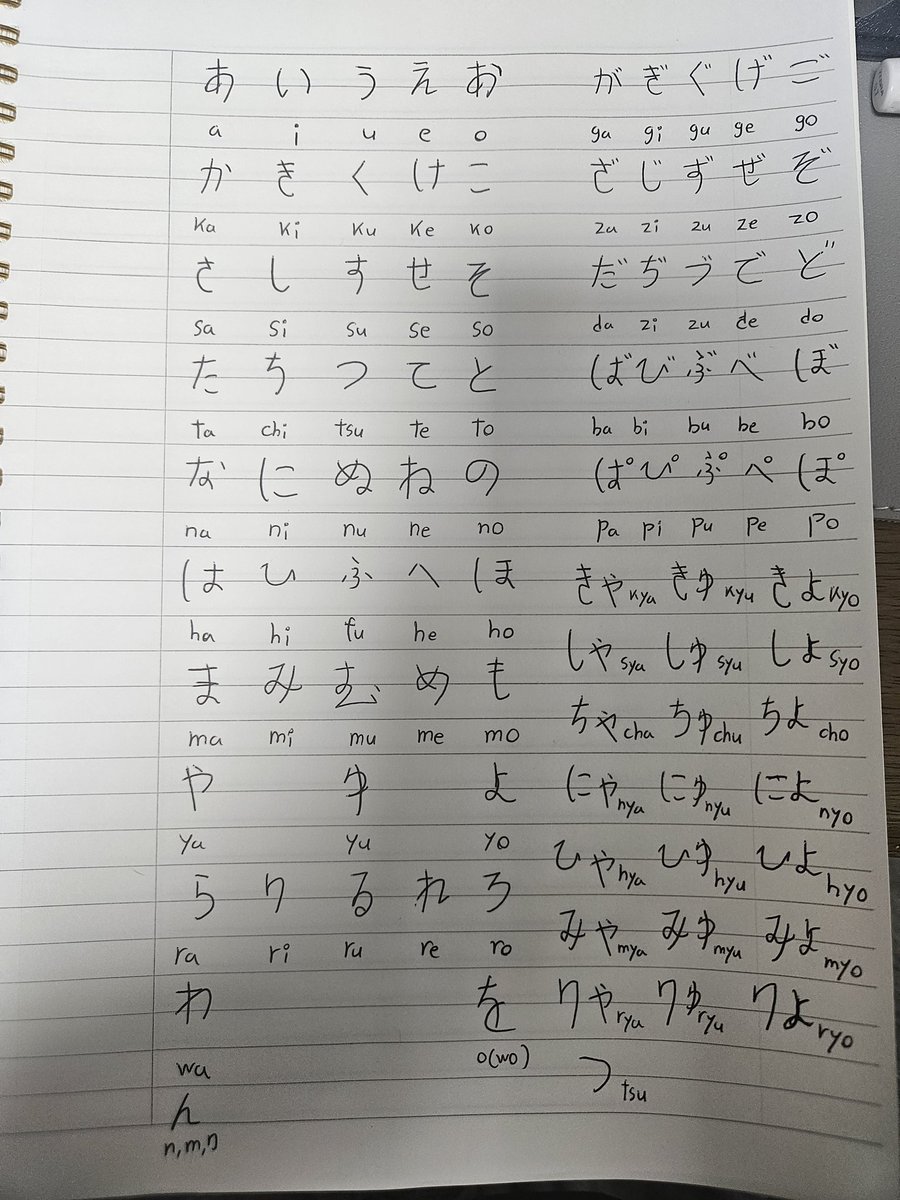 あ い う え お が ぎ ぐ げ ご
a i u e o ga gi gu ge go
か き く け こ ざ じ ず ぜ ぞ
ka ki ku ke ko za zi zu ze zo
さ し す せ そ だ ぢ づ で ど
sa si su se so da zi zu de do
た ち つ て と ば び ぶ べ ぼ
ta chi tsu te to ba bi bu be bo
な に ぬ ね の ぱ ぴ ぷ ぺ ぽ
na ni nu ne no pa pi pu pe po
は ひ ふ へ ほ きゃ kya きゅ kyu きょ kyo
ha hi fu he ho しゃ sya しゅ syu しょ syo
ま み む め も ちゃ cha ちゅ chu ちょ cho
ma mi mu me mo
や ゆ よ にゃ nya にゅ nyu にょ nyo
ya yu yo ひゃ hya ひゅ hyu ひょ hyo
ら り る れ ろ みゃ mya みゅ myu みょ myo
ra ri ru re ro
わ を りゃ rya りゅ ryu りょ ryo
wa o(wo) っ tsu
ん
n,m,ŋ